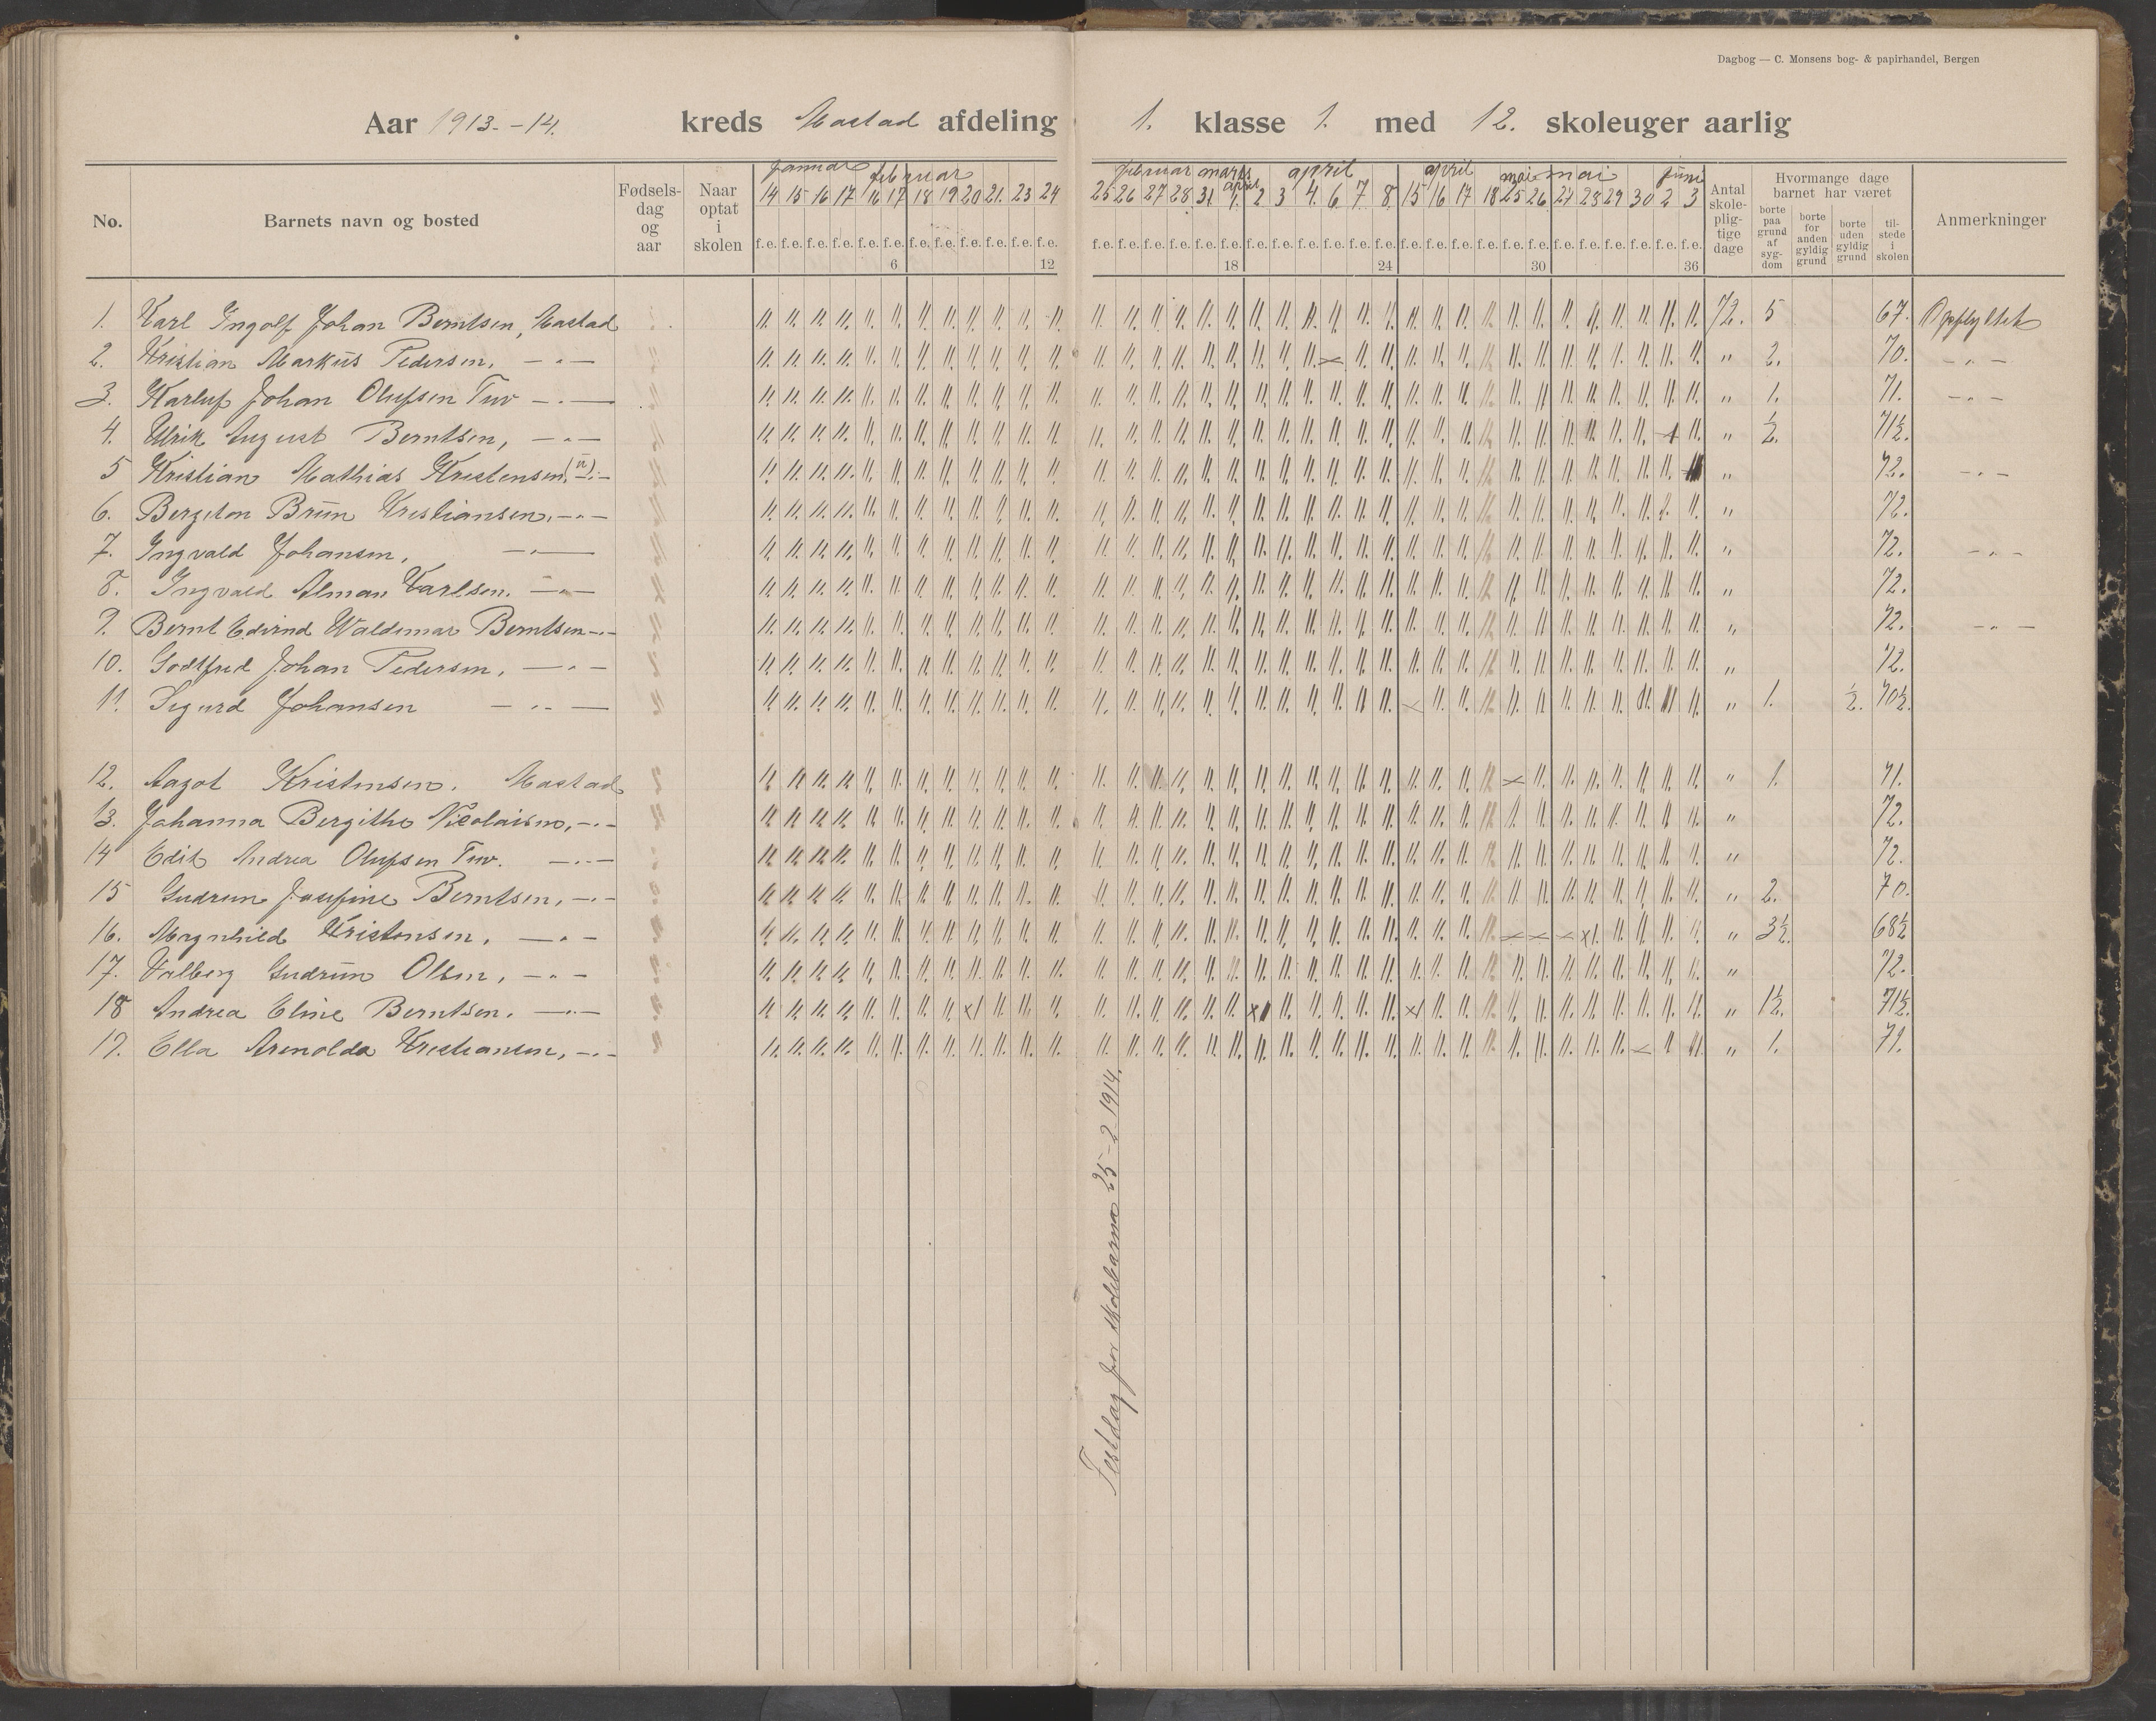 Dagbog — C. Monsens bog- & papirhandel, Bergen
Aar 1913.-14. kreds Mastad afdeling 1. klasse 1. med 12. skoleuger aarlig
No. Barnets navn og bosted Fødsels-dag og aar Naar optat i skolen
januar februar februar marts april april april mai mai juni
14 15 16 17 16 17 18 19 20 21. 23 24 25 26 27 28 31 1. 2 3 4. 6 7 8. 15 16 17 18 25 26 27 28 29 30 2 3
f.e. f.e. f.e. f.e. f.e. f.e. f.e. f.e. f.e. f.e. f.e. f.e. f.e. f.e. f.e. f.e. f.e. f.e. f.e. f.e. f.e. f.e. f.e. f.e. f.e. f.e. f.e. f.e. f.e. f.e. f.e. f.e. f.e. f.e. f.e. f.e.
6 12 18 24 30 36
Antal skole-plig-tige dage
Hvormange dage barnet har været
borte paa grund af syg-dom borte for anden gyldig grund borte uden gyldig grund til-stede i skolen
Anmerkninger
1. Karl Ingolf Johan Berntsen, Mastad 72. 5 67. Opflyttet
2. Kristian Markus Pedersen, — „ — „ 2. 70. — „ —
3. Karluf Johan Olufsen Tuv — „ — „ 1. 71. — „ —
4. Ulrik August Berntsen, — „ — „ ½. 71½.
5 Kristian Mathias Kristensen, — „ — „ 72. — „ —
6. Bergiton Brun Kristiansen, — „ — „ 72.
7. Ingvald Johansen, — „ — „ 72. — „ —
8. Ingvald Alman Karlsen. — „ — „ 72.
9. Bernt Edvind Waldemar Berntsen — „ — „ 72. — „ —
10. Godtfred Johan Pedersen, — „ — „ 72.
11. Sigurd Johansen — „ — „ 1. ½. 70½.
12. Aagot Kristensen. Mastad „ 1. 71.
13. Johanna Bergithe Nicolaisen, — „ — „ 72.
14 Edit Andrea Olufsen Tuv. — „ — „ 72.
15 Gudrun Josefine Berntsen, — „ — „ 2. 70.
16. Magnhild Kristensen, — „ — „ 3½. 68½
17. Valberg Gudrun Olsen, — „ — „ 72.
18 Andrea Eline Berntsen. — „ — „ 1½. 71½.
19. Ella Arenolda Kristiansen, — „ — „ 1. 71.
Festdag for skolebarna 25-2 1914.